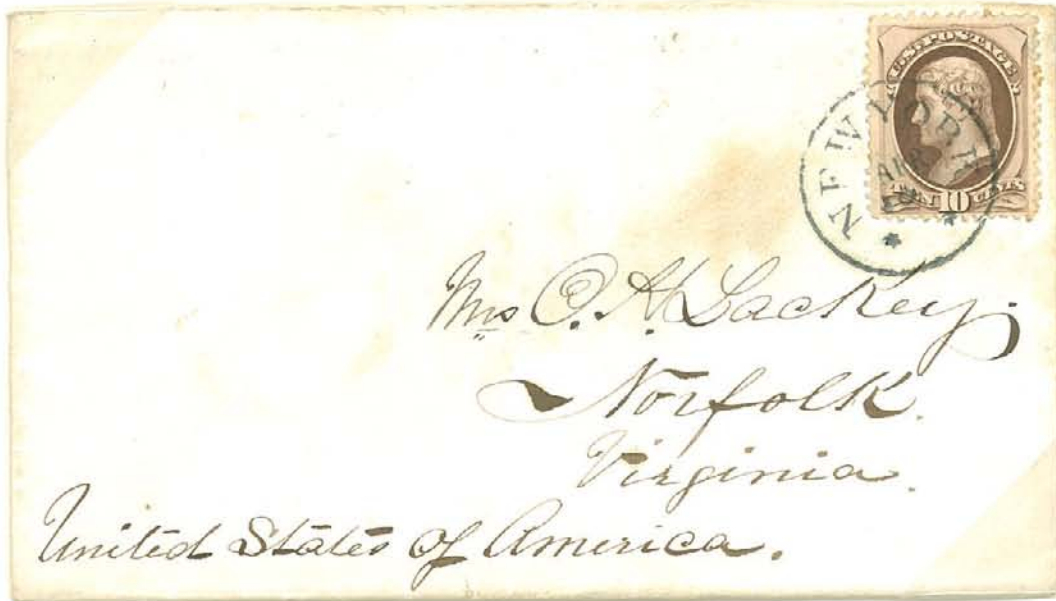 U.S. POSTAGE
NEW YORK
APR
TEN 10 CENTS
Mrs C. H. Lackey.
Norfolk.
Virginia.
United States of America.